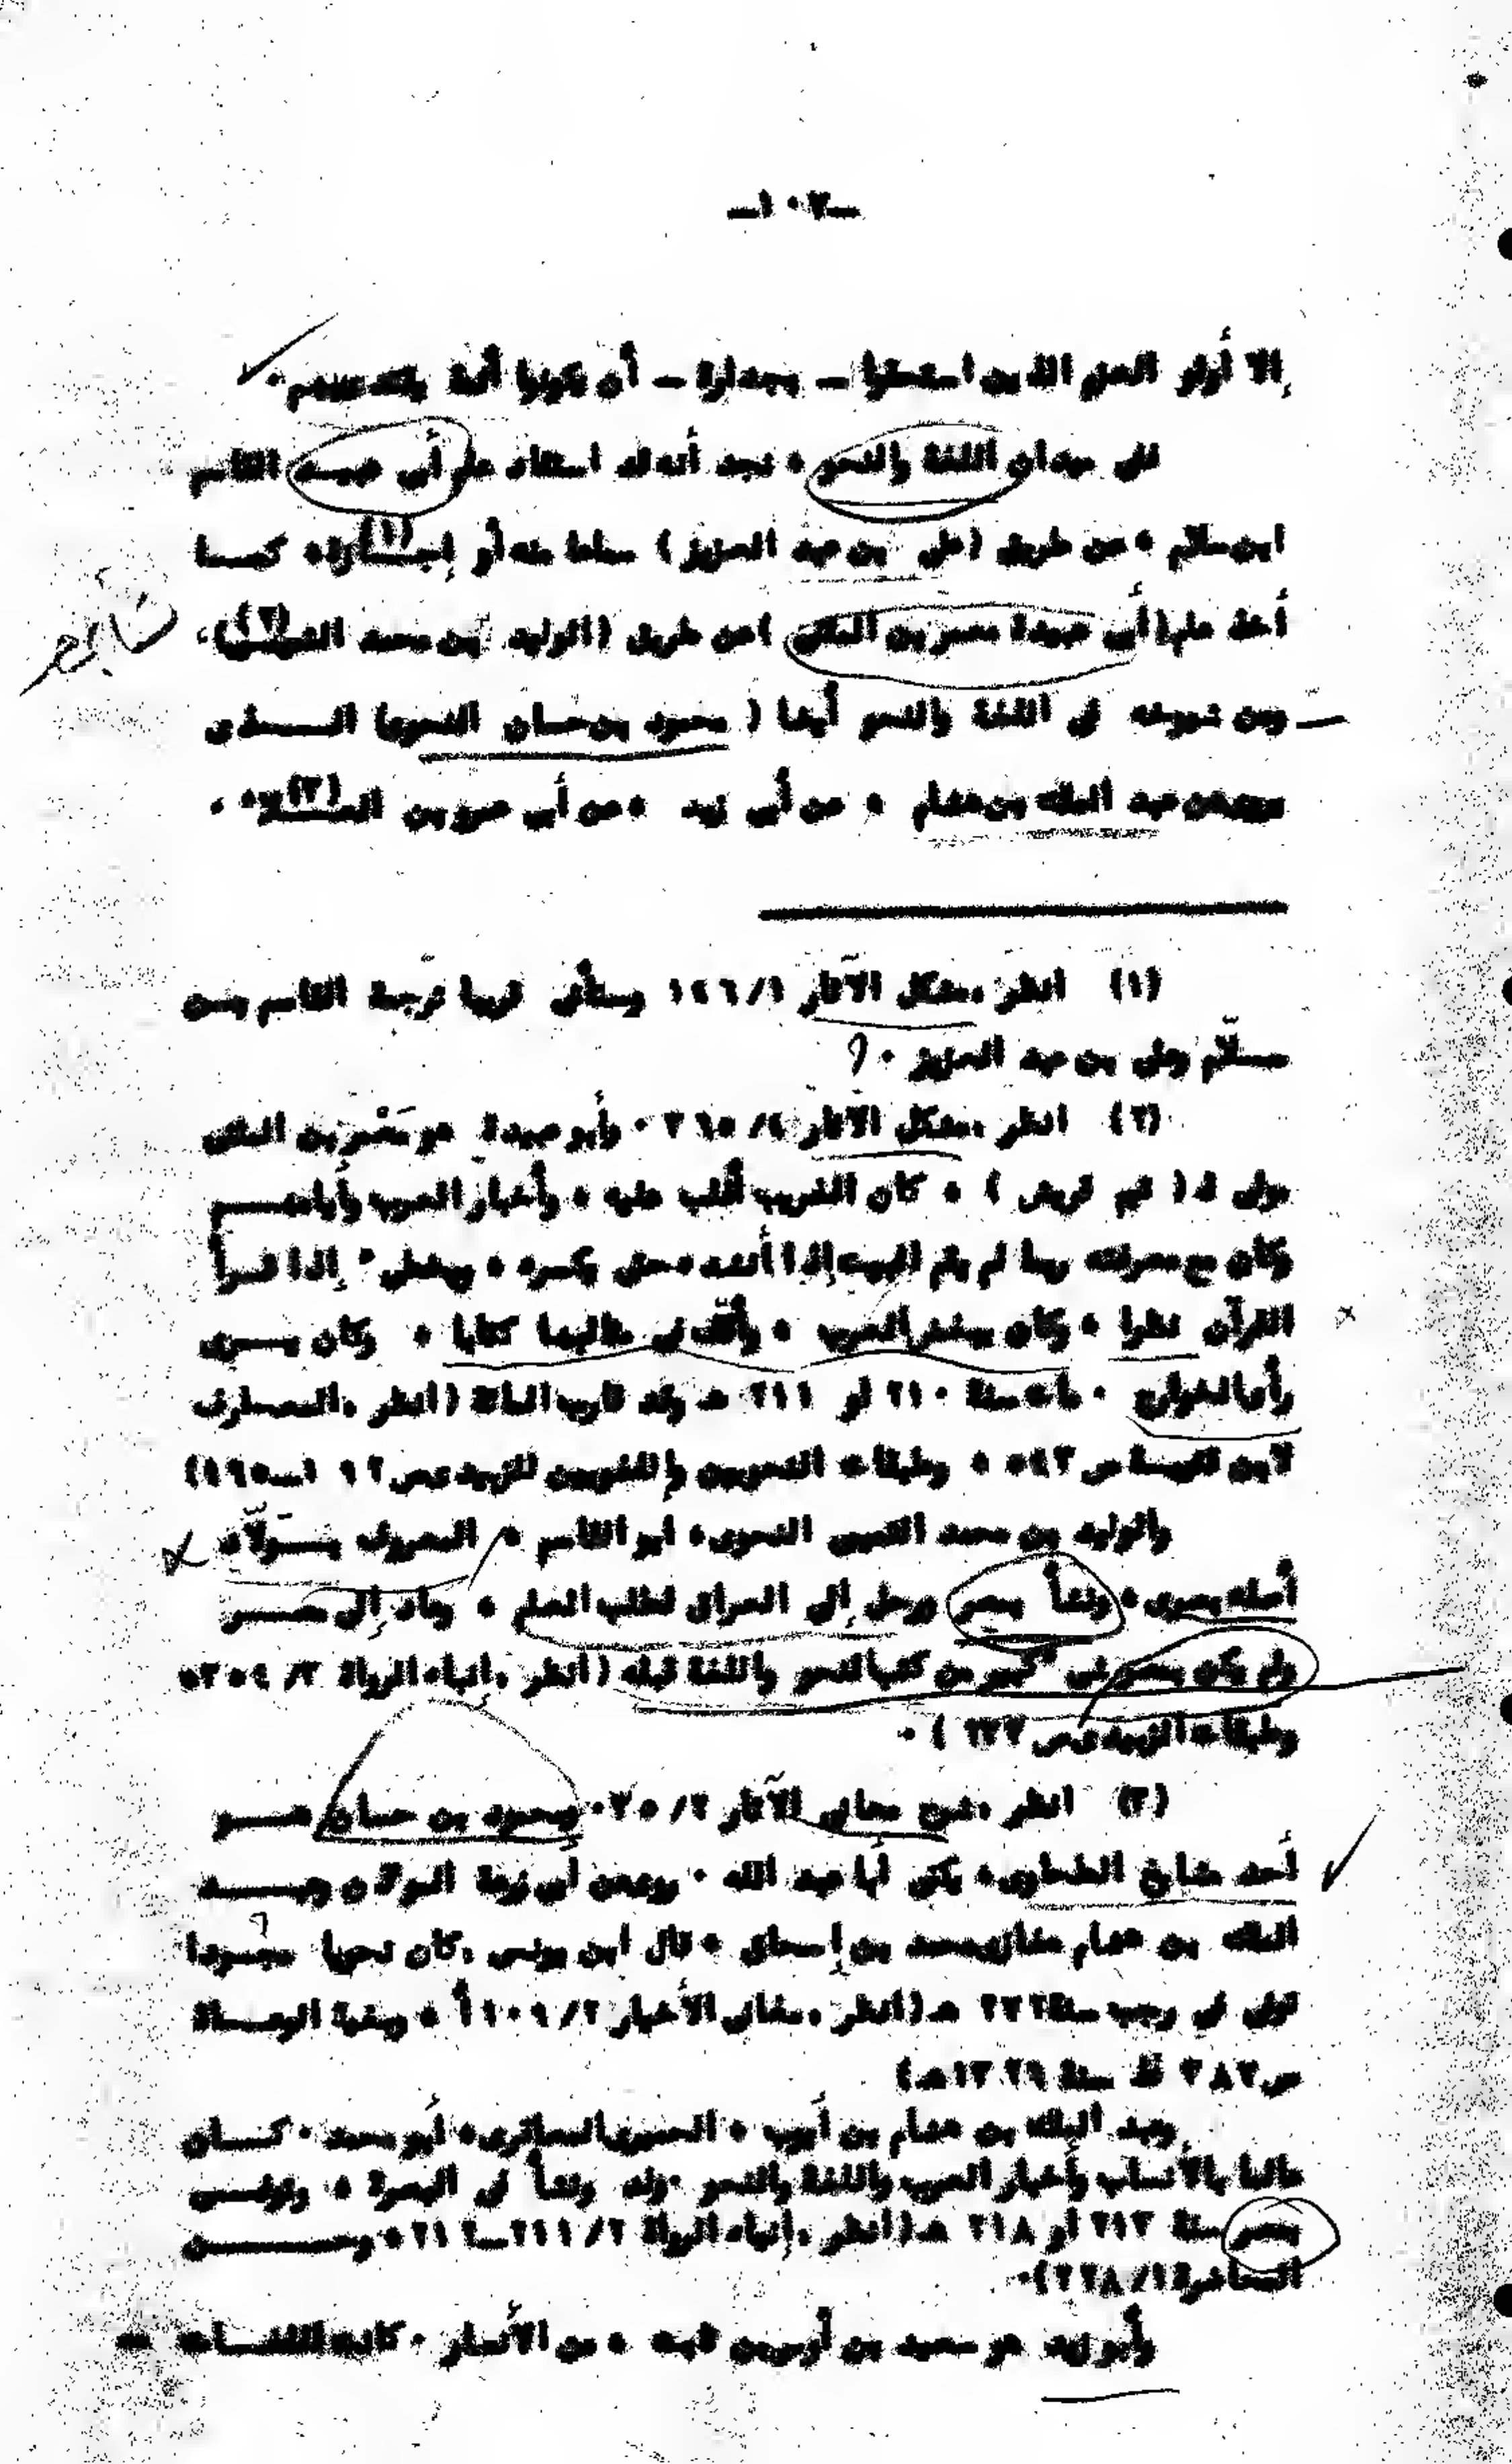 -١٠٧-
إلا أولو العلم الذين استحقوا - بجدارة - أن يكونوا أئمة يقتدى بهم ٠
ففي ميدان اللغة والنحو ، نجد أنه قد استفاد علم أبي عبيد القاسم
ابن سلام ، عن طريق (علي بن عبد العزيز) سماعا منه أو إجازة(١)، كما
أخذ علم (أبي عبيدة معمر بن المثنى) عن طريق (الوليد بن محمد التميمي)(٢)،
ومن شيوخه في اللغة والنحو أيضا (محمود بن حسان النحوي) الذي
يروي عن عبد الملك بن هشام ، عن أبي زيد ، عن أبي عمرو بن العلاء(٣) ٠
(١) انظر مشكل الآثار ١/ ١٤٦ وستأتي قريبا ترجمة القاسم بن
سلّام وعلي بن عبد العزيز ٠
(٢) انظر مشكل الآثار ٤/ ٢٦٥ ٠ وأبو عبيدة هو مَعْمر بن المثنى
مولى لـ (تيم قريش) ، كان الغريب أغلب عليه ، وأخبار العرب وأيامهم
وكان مع معرفته ربما لم يقم البيت إذا أنشده حتى يكسره ، ويخطئ إذا قرأ
القرآن نظرا ، وكان يبغض العرب ، وألّف في مثالبها كتابا ، وكان يرى
رأي الخوارج ٠ مات سنة ٢١٠ أو ٢١١ هـ وقد قارب المائة (انظر ، المعارف
لابن قتيبة ص ٥٤٣ ، وطبقات النحويين واللغويين للزبيدي ص
والوليد بن محمد التميمي النحوي، أبو القاسم ، المعروف بولّاد
أصله بصري ، ونشأ بمصر ورحل إلى العراق لطلب العلم ، وعاد إلى مصر
ولم يكن بمصر شيء كبير من كتب النحو واللغة قبله (انظر ، إنباه الرواة ٣/ ٣٥٤،
وطبقات الزبيدي ص
(٣) انظر ، شرح معاني الآثار ٢/ ٢٥٠ ومحمود بن حسان هو
أحد مشايخ الطحاوي، يكنى أبا عبد الله ٠ روى عن أبي زرعة المؤذن وعبد
الملك بن هشام مغازي محمد بن إسحاق ، قال ابن يونس ، كان نحويا مجودا
توفي في رجب سنة ٢٧٢ هـ (انظر ، مغاني الأخيار ٢/ ١٠٩ أ ، وبغية الوعاة
ص ٣٨٧ ط سنة ١٣٢٦هـ)
وعبد الملك بن هشام بن أيوب ، الحميري المعافري، أبو محمد ٠ كان
عالما بالأنساب وأخبار العرب واللغة والنحو ٠ ولد ونشأ في البصرة ، وتوفي
بمصر سنة ٢١٣ أو ٢١٨ هـ (انظر ، إنباه الرواة ٢/ ٢١١-٢١٢ ، وحسن
المحاضرة ١/ ٢٢٨)٠
وأبو زيد هو سعيد بن أوس بن ثابت ، من الأنصار ٠ كانت اللغات =